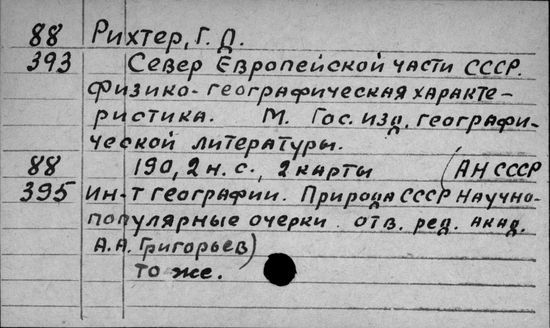 88 Рихтер, Г. Д.
393 Север Европейской части СССР.
Физико-географическая характе-
ристика. М. Гос. изд. географи-
ческой литературы.
88 190, 2 н. с., 2 карты (АН СССР
395 Ин-т географии. Природа СССР Научно-
популярные очерки. отв. ред. акад.
А. А. Григорьев)
то же.